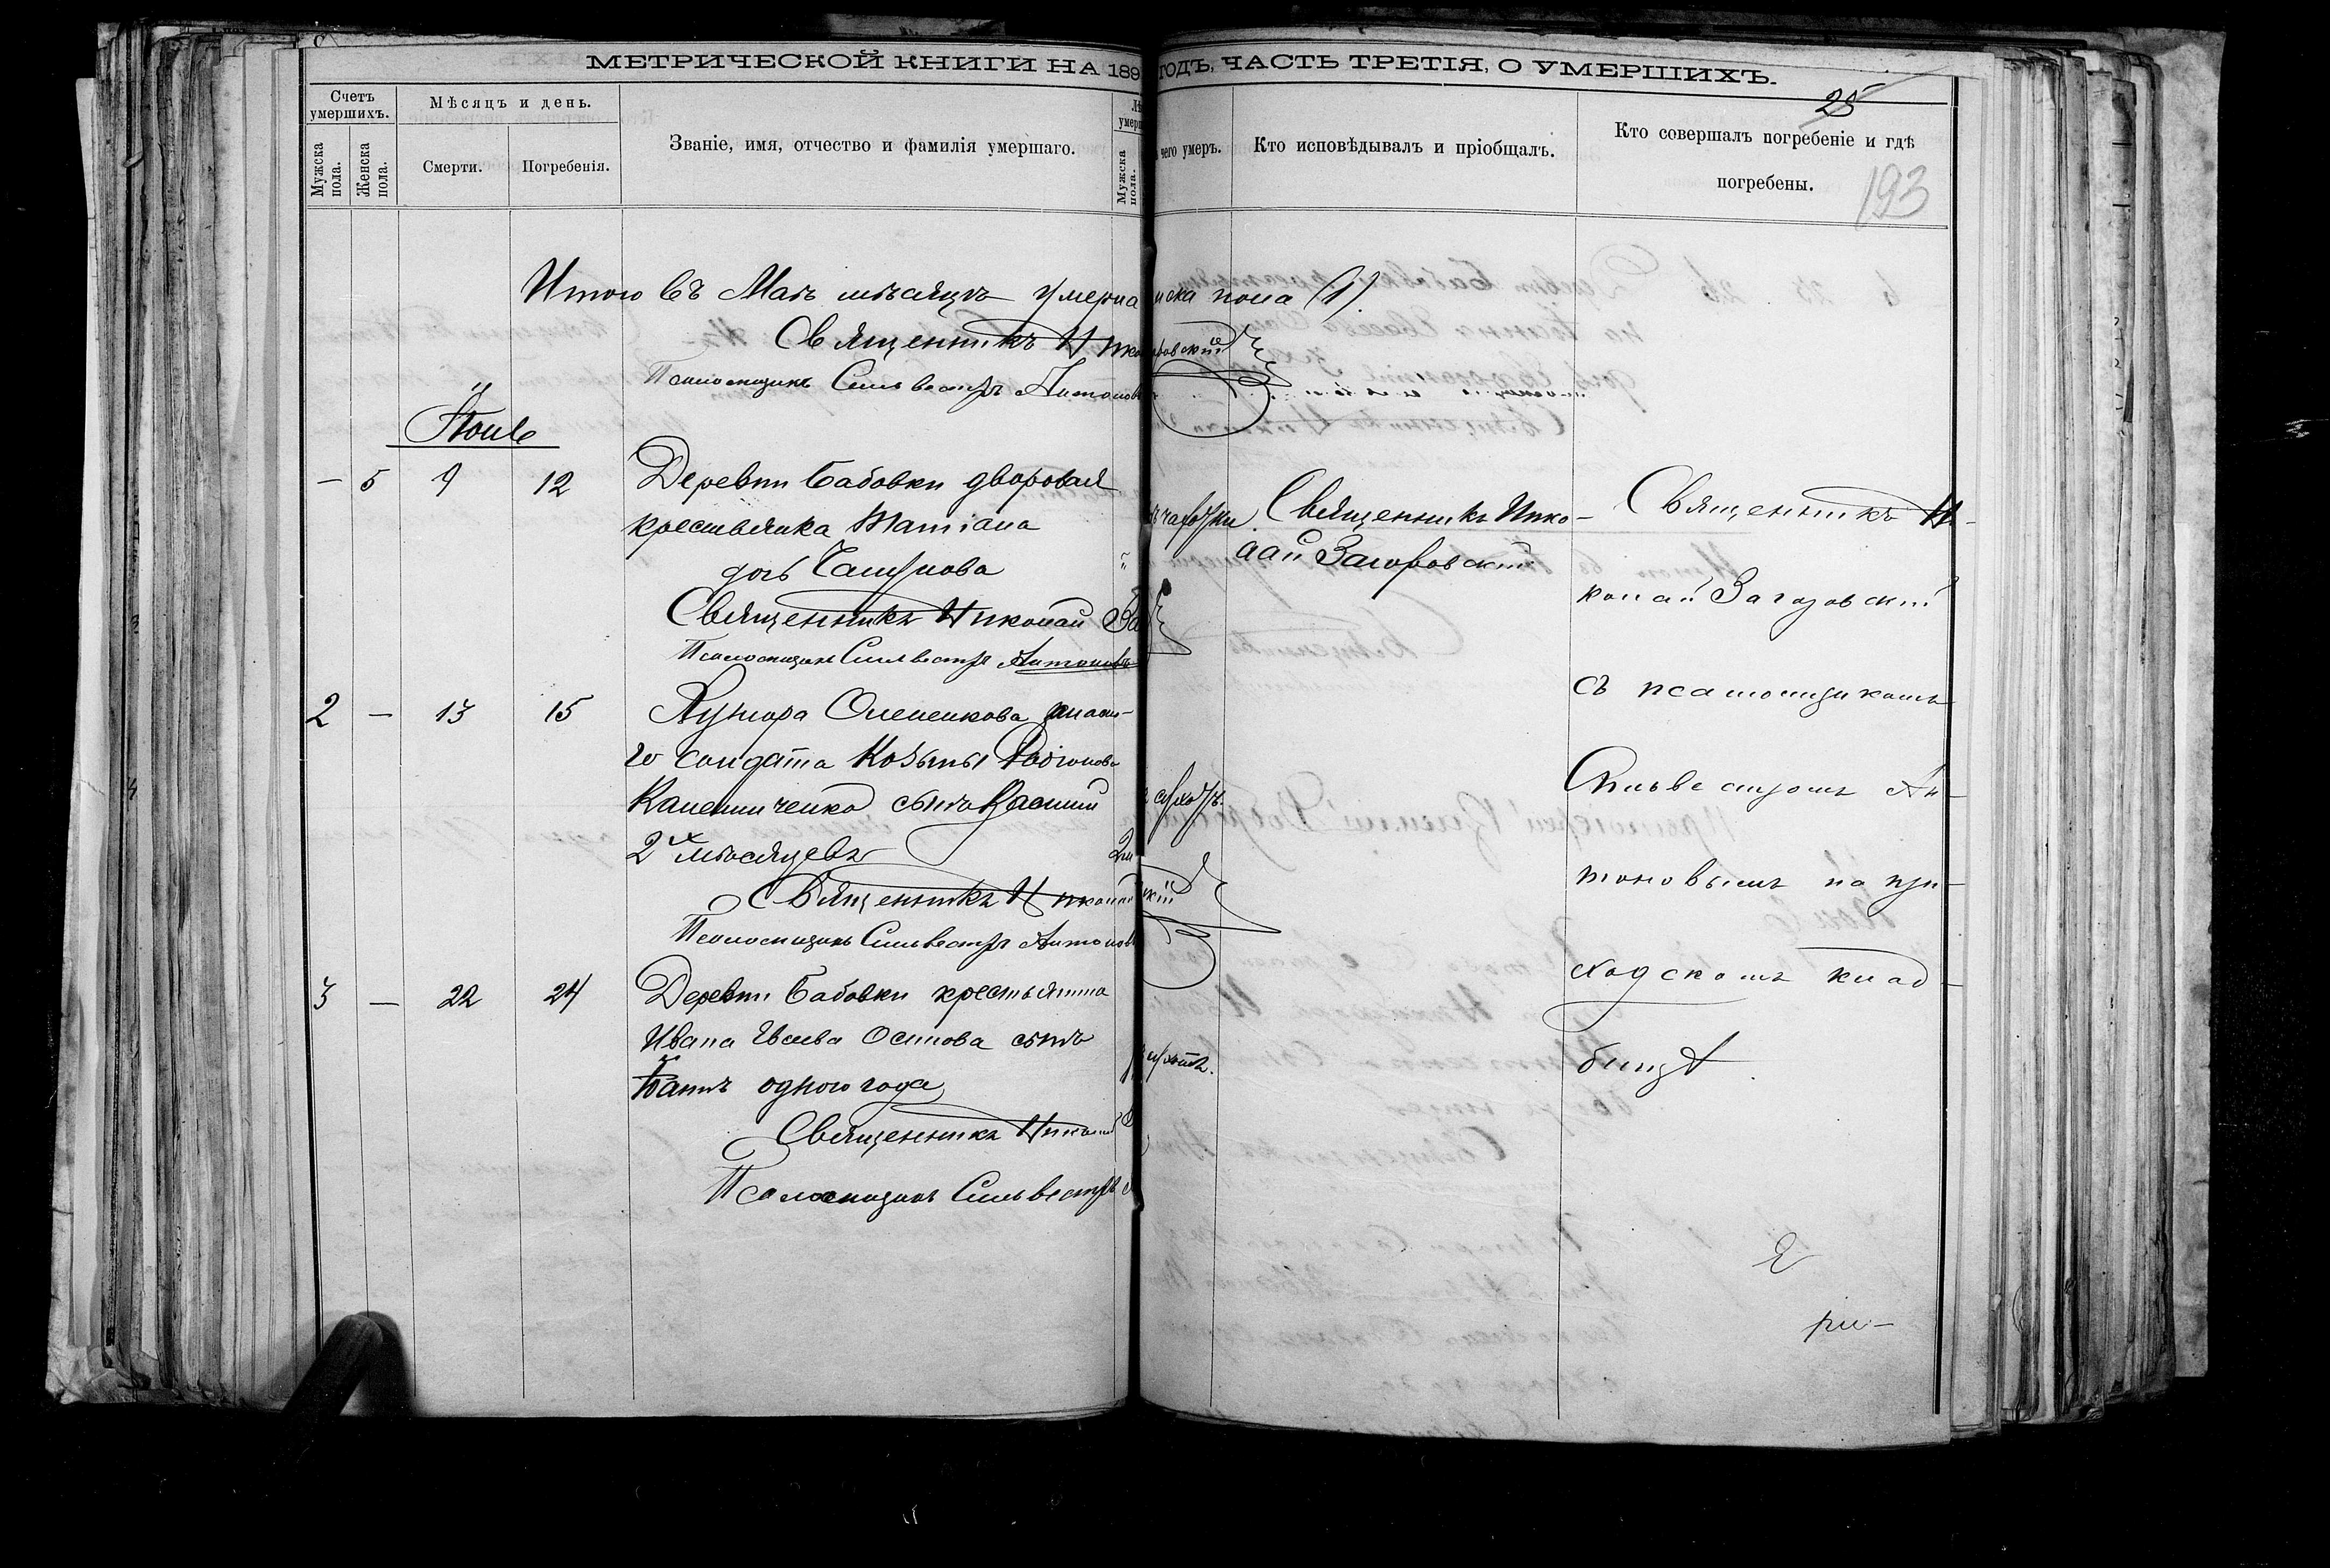 МЕТРИЧЕСКОЙ КНИГИ НА 189 ГОДЪ, ЧАСТЬ ТРЕТІЯ, О УМЕРШИХЪ.
25
193
Счетъ умершихъ.
Мужска пола.
Женска пола.
Мѣсяцъ и день.
Смерти.
Погребенія.
Званіе, имя, отчество и фамилія умершаго.
Мужска пола.
чего умеръ.
Кто исповѣдывалъ и пріобщалъ.
Кто совершалъ погребеніе и гдѣ
погребены.
Итого въ Маѣ мѣсяцѣ умерла пола (1)
Священникъ
Псаломщикъ Сильвестръ Антоновъ
Іюнь
— 5 9 12 Деревни Бабовки дворовая
крестьянка Татіана
Священникъ Николай За
Псаломщикъ Сильвестръ Антоновъ
чахотки
Священникъ Нико-
лай Загоровскій
Священникъ Ни-
колай Загоровскій
съ псаломщикомъ
Сильвестромъ Ан-
тоновымъ на при-
ходскомъ клад-
бищѣ
2 — 13 15 Хутора
го солдата Козьмы Родіонова
сынъ Василій
2хъ мѣсяцевъ
2 м
Священникъ Николай
Псаломщикъ Сильвестръ Антоновъ
3 — 22 24 Деревни Бабовки крестьянина
Ивана Осипова сынъ
Іоаннъ одного года
Священникъ Николай
Псаломщикъ Сильвестръ